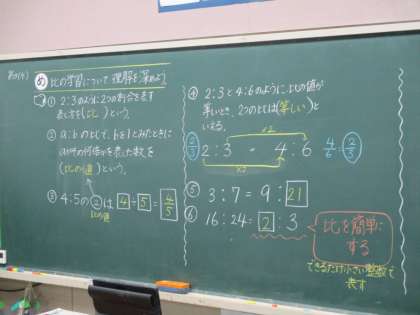 め 比の学習について理解を深めよう。
① 2:3のように2つの割合を表す
表し方を(比)という。
② a:bの比で、bを1とみたときに
aが何倍かを表した数を
(比の値)という。
③ 4:5の②は 4÷5=4/5
比の値
④ 2:3と4:6のように比の値が
等しいとき、2つの比は(等しい)と
いえる。
×2
2/3 2:3 = 4:6 4/6=2/3
×2
⑤ 3:7=9:21
⑥ 16:24=2:3
比を簡単に
する
できるだけ小さい整数で
表す